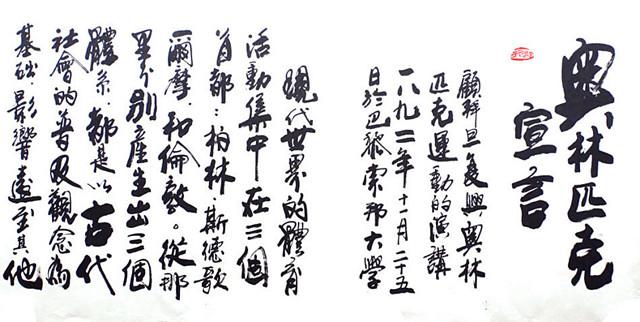 奧林匹克
宣言
顧拜旦复興奧林
匹克運動的演講
一八九二年十一月二十五
日於巴黎索邦大學
現代世界的體育
活動集中在三個
首都:柏林、斯德歌
爾摩、和倫敦。從那
里分別產生出三個
體系,都是以古代
社會的普及觀念為
基礎,影響遠至其他